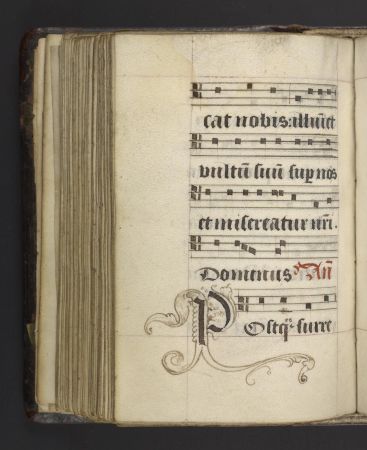 cat nobis: illuīet
vultū suū sup nos
et misereatur nr̄i.
Domenus Añ
Postqͣ surre